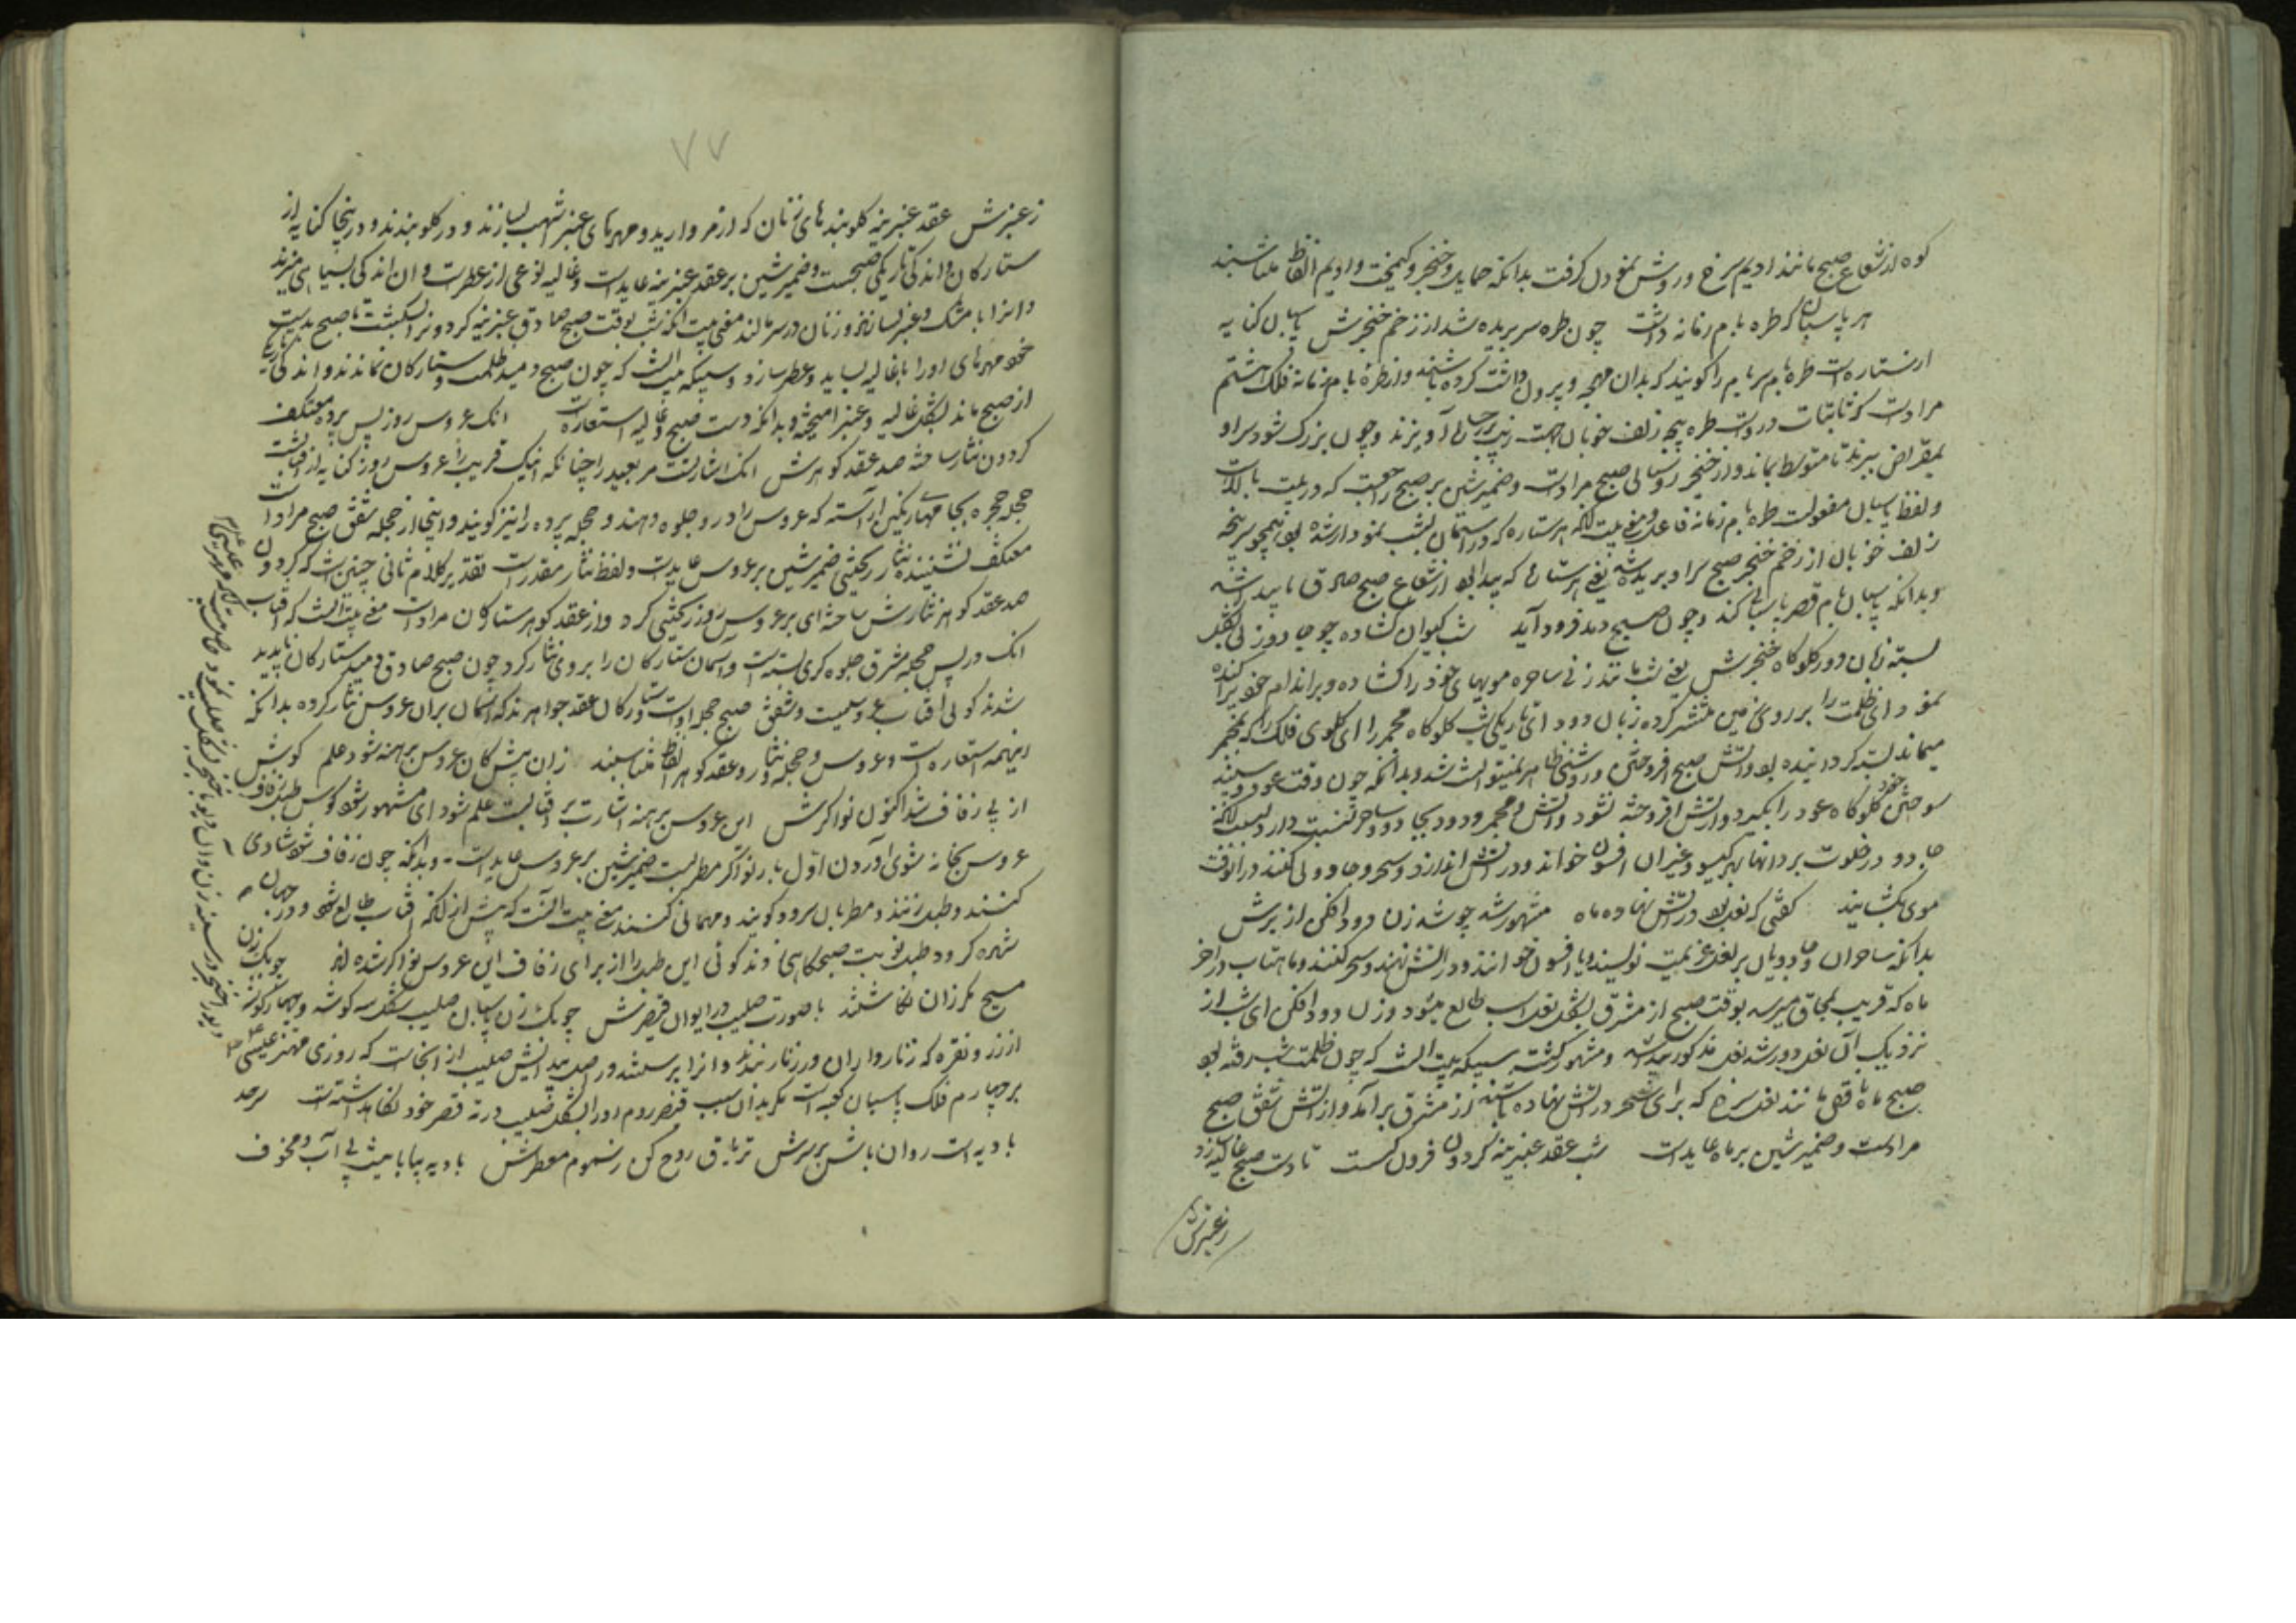 کوه از شعاع صبح مانند ادیم سرخ و روش نمودل گرفت بدانکه حمایل و خنجر و کیمخت و ادیم الفاظ متناسبند
هر پاسبان که طره بام زمانه داشت چون طره سر بریده شد از زخم خنجرش پاسبان کنایه
از ستاره است طره بام سر بام را گویند که بدان جهت و بیرون داشت کرده باشند و از طره بام زمانه فلک هشتم
مراد است که ثابتات در وست طره پیچه زلف خوبان جهت زیب بر جبین آویزند و چون بزرگ شود سر او
بمقراض ببرند تا متوسط بماند و از خنجر روشنائی صبح مراد است و ضمیر شین بر صبح راجعست که در بیت بالاست
و لفظ پاسبان مفعولست طره بام زمانه فاعل و معنی بیت آنکه هر ستاره که در آسمان بشب نمودار شده بود همچو سر پیچه
زلف خوبان از زخم خنجر صبح سر او بریده شد یعنی هر ستاره که پیدا بود از شعاع صبح صادق ناپدید شد
و بدانکه پاسبان بام قصر پاسبانی کند و چون صبح دمد فرود آید شب گیسوان گشاده چو جادو زنی بشکل
بسته زبان دود گلوگاه خنجرش یعنی شب مانند زنی ساحره مویهای خود را گشاده و بر اندام خود پراکنده
نمود ای ظلمت را بر روی زمین منتشر کرده زبان دود ای تاریکی شب گلوگاه مجمر را ای گلوی فلک را که بمجمر
میماند بسته گردانیده بود و آتش صبح افروختن و روشنی ظاهر نمیتوانست شد و بدانکه چون وقت عود و سپند
سوختن دود گلوگاه عود را بگیرد و آتش افروخته نشود و آتش و مجمر و دود بجادو و ساحر تنسبت دارد بسبب آنکه
جادو در خلوت بر دانها بهر گیسو و غیر آن افسون خواند و در آتش اندازد و سحر و جادوئی کنند در آنوقت
موی بگشایند گفتی که نعل بود در آتش نهاده ماه مشهور شد چو شد زن دود افکن از برش
بدانکه ساحران و جادویان بر نعل عزیمت نویسند و یا افسون خوانند و در آتش نهند و سحر کنند و ماهتاب در آخر
ماه که قریب بمحاق میرسد بوقت صبح از مشرق بشکل نعل اسب طالع میشود و زن دود افکن ای شب از
نزدیک آن نعل دور شد نعل مذکور پیدا شد و مشهور گشت سبیکه بیت آنست که چون ظلمت شب رفته بود
صبح ماه باقی مانند نعل سرخ که برای سحر در آتش نهاده باشند از مشرق برآمد و از آتش شفق صبح
مراد است و ضمیر شین بر ماه عاید است شب عقد عنبرینه گردون فروگسست تا دست صبح غالیه سازد
ز عنبرش
۷۷
ز عنبرش عقد عنبرینه گلوبندهای زنان که از مروارید و مهرهای عنبر اشهب بسازند و در گلو بندند و در ینجا کنایه از
ستارگان و اندکی تاریکی صبحست و ضمیر شین بر عقد عنبرینه عاید است و غالیه نوعی از عطر است و آن اندکی بسیاهی میزند
و آنرا با مشک و عنبر بسازند و زنان در سر مالند معنی بیت آنکه شب بوقت صبح صادق عنبرینه گردون را بگسست تا صبح بدست
خود مهرهای او را با غالیه بساید و عطر سازد و سبیکه بیت آنست که چون صبح دمید ظلمت و ستارگان نماندند و اندکی تاریکی
از صبح ماند بشکل غالیه و عنبر آمیخته و بدانکه دست صبح و غالیه استعاره است انک عروس روز پس پرده معتکف
گردون نثار ساخته صد عقد گوهرش انک اشارتست مر بعید را چنانکه اینک قریب را عروس روز کنایه از آفتابست
حجله حجره بجامهای رنگین آراسته که عروس را در و جلوه دهند و حجله پرده را نیز گویند و اینجا از حجله شفق صبح مراد است
معتکف نشیننده نثار ریختنی ضمیر شین بر عروس عاید است و لفظ نثار مقدر است تقدیر کلام ثانی چنین است که گردون
صد عقد گوهر نثارش ساخته ای بر عروس روز ریختنی کرد و از عقد گوهر ستارگان مراد است معنی بیت آنست که آفتاب
انک در پس حجله مشرق جلوه گری بسته است و آسمان ستارگان را بر وی نثار کرد چون صبح صادق دمید ستارگان ناپدید
شدند گوئی آفتاب عروسیست و شفق صبح حجله اوست و ستارگان عقد جواهرند که آسمان بر آن عروس نثار کرده بدانکه
اینهمه استعاره است و عروس و حجله و نثار و عقد گوهر الفاظ متناسبند زان پیش کان عروس برهنه شود علم گوش
از پی زفاف شد اکنون نواگرش این عروس برهنه اشارت بر آفتابست علم شود ای مشهور شود کوس طبل زفاف
عروس بخانه شوی آوردن اول بار نواگر مطربست ضمیر شین بر عروس عاید است و بدانکه چون زفاف شود شادی
کنند و طبل زنند و مطربان سرود گویند و مهمانی کنند معنی بیت آنست که پیش از آنکه آفتاب طالع شود و در جهان
شهره گردد طبل نوبت صبحگاهی زدند گوئی این طبل را از برای زفاف این عروس نواگر شده اند چوبک زن
مسیح مگر زان نگاشتند با صورت صلیب در ایوان قیصرش چوبک زن پاسبان صلیب شکل سه گوشه و چهار گوشه
از زر و نقره که زنارداران در زنار بندند و آنرا پرستند و در اصل پیدایش صلیب از آنجاست که روزی مهتر عیسی علیه
بر چهارم فلک پاسبان کعبه است مگر بدان سبب قیصر روم او را بشکل صلیب در قصر خود نگاهداشته است سرحد
بادیه است روان باش بر سرش تریاق روح کن ز سموم معطرش بادیه بیابانیست بی آب و مخوف